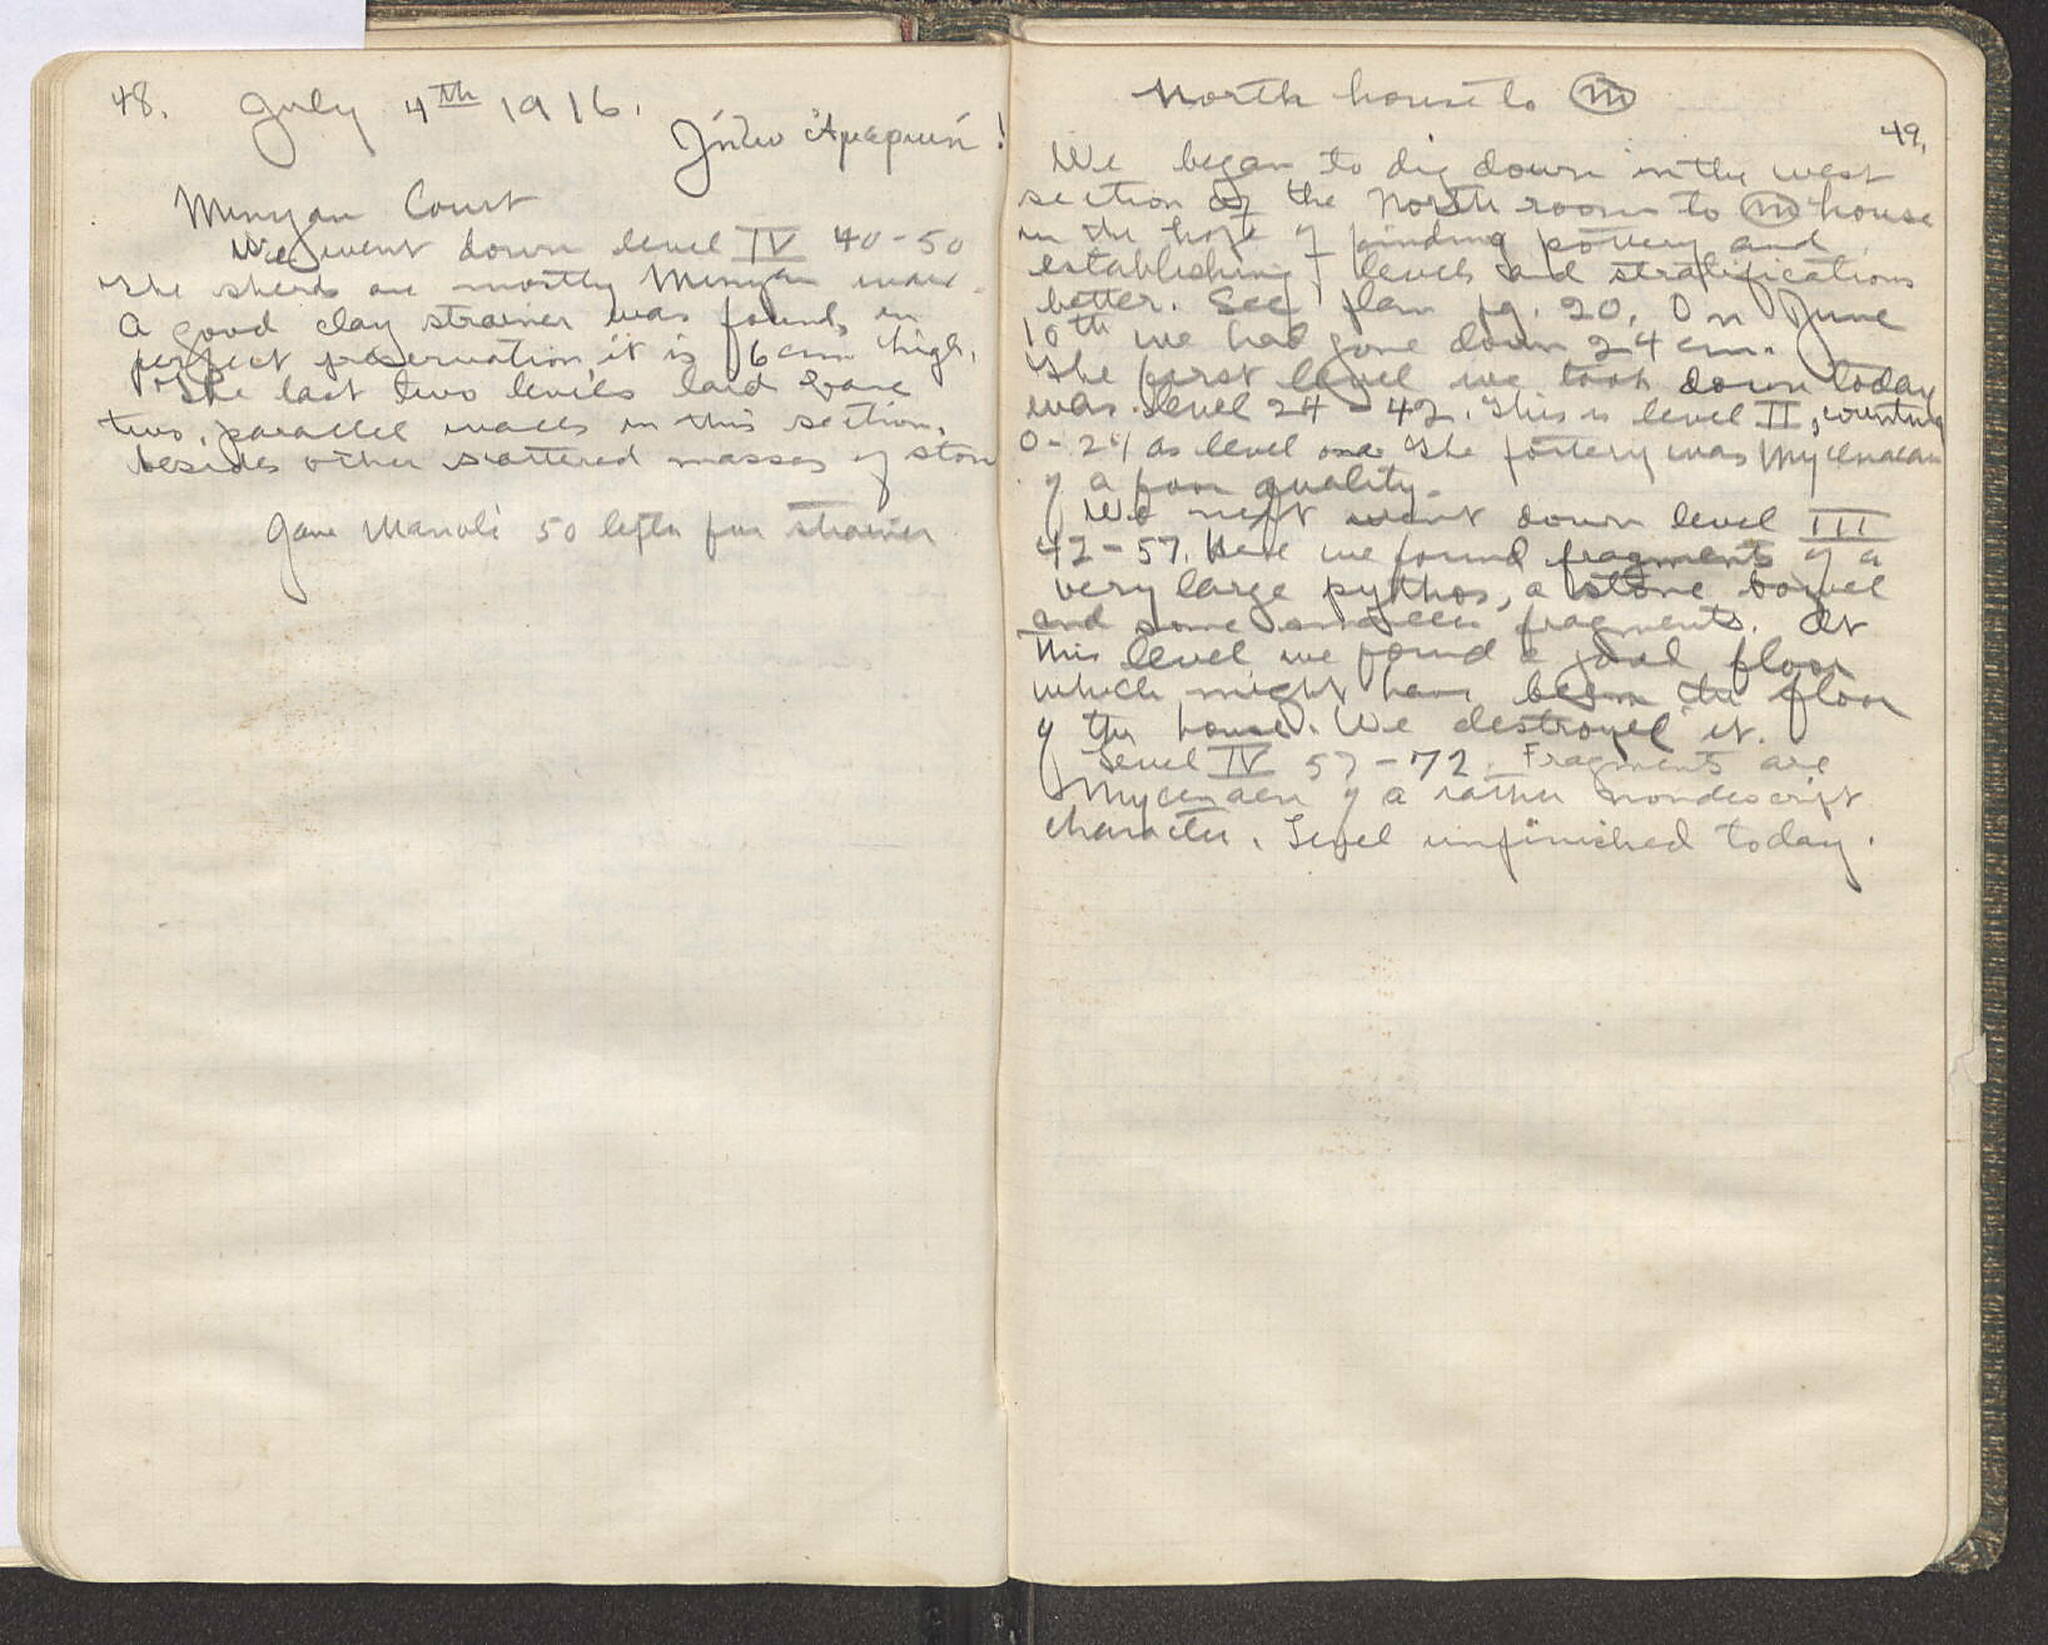 48. July 4th 1916.
Ζήτω Ἀμερική!
Minyan Court
We went down level IV 40-50
The sherds are mostly Minyan ware.
A good clay strainer was found, in
perfect preservation, it is 6 cm high.
The last two levels laid bare
two, parallel walls in this section,
besides other scattered masses of stone
Gave Manoli 50 lepta for strainer
North house to (m)
49.
We began to dig down in the west
section of the North room to (m) house
in the hope of finding pottery and
establishing levels and stratifications
better. See plan pg. 20. On June
10th we had gone down 24 cm.
The first level we took down today
was level 24-42. This is level II, counting
0-24 as level one. The pottery was Mycenaean
of a poor quality.
We next went down level III
42-57. Here we found fragments of a
very large pythos, a stone bowel
and some smaller fragments. At
this level we found a hard floor
which might have been the floor
of the house. We destroyed it.
Level IV 57-72. Fragments are
Mycenaean of a rather nondescript
character. Level unfinished today.